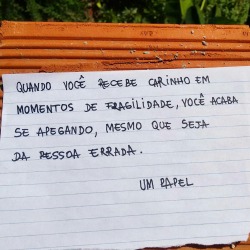 QUANDO VOCÊ RECEBE CARINHO EM
MOMENTOS DE FRAGILIDADE, VOCÊ ACABA
SE APEGANDO, MESMO QUE SEJA
DA PESSOA ERRADA.
UM PAPEL